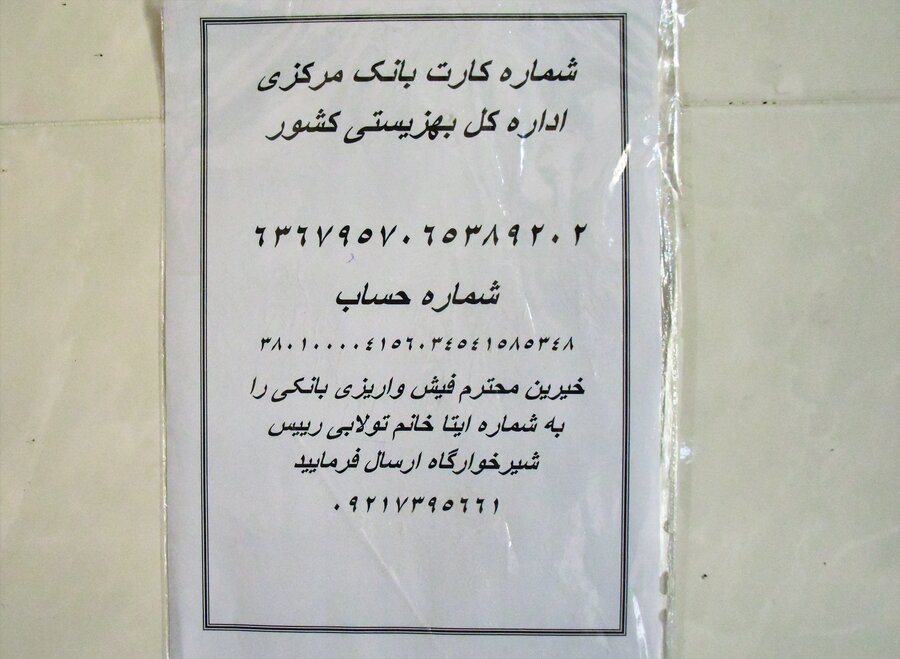 شماره کارت بانک مرکزی
اداره کل بهزیستی کشور
۶۳۶۷۹۵۷۰۶۵۳۸۹۲۰۲
شماره حساب
۳۸۰۱۰۰۰۰۴۱۵۶۰۳۴۵۴۱۵۸۵۳۴۸
خیرین محترم فیش واریزی بانکی را
به شماره ایتا خانم تولابی رییس
شیرخوارگاه ارسال فرمایید
۰۹۲۱۷۳۹۵۶۶۱